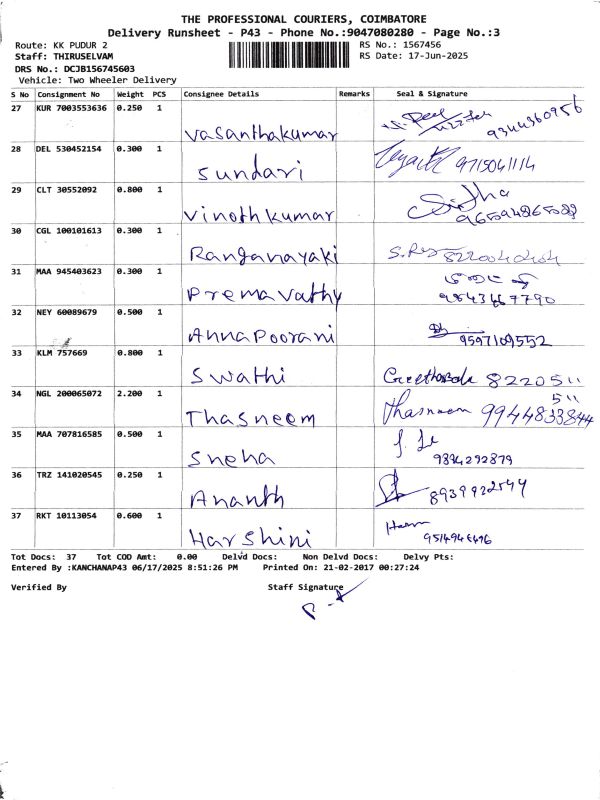 THE PROFESSIONAL COURIERS, COIMBATORE
Delivery Runsheet - P43 - Phone No.:9047080280 - Page No.:3
Route: KK PUDUR 2 RS No.: 1567456
Staff: THIRUSELVAM RS Date: 17-Jun-2025
DRS No.: DCJB156745603
Vehicle: Two Wheeler Delivery
S No Consignment No Weight PCS Consignee Details Remarks Seal & Signature
27 KUR 7003553636 0.250 1
Vasanthakumar 9344360956
28 DEL 530452154 0.300 1
Sundari 9715041114
29 CLT 30552092 0.800 1
Vinothkumar
30 CGL 100101613 0.300 1
Ranganayaki
31 MAA 945403623 0.300 1
Premavathy 9843667790
32 NEY 60089679 0.500 1
AnnaPoorani 9597109552
33 KLM 757669 0.800 1
Swathi 8220511
511
34 NGL 200065072 2.200 1
Thasneem Thasneem 9944833844
35 MAA 707816585 0.500 1
Sneha 9894292879
36 TRZ 141020545 0.250 1
Ananth
37 RKT 10113054 0.600 1
Harshini
Tot Docs: 37 Tot COD Amt: 0.00 Delvd Docs: Non Delvd Docs: Delvy Pts:
Entered By :KANCHANAP43 06/17/2025 8:51:26 PM Printed On: 21-02-2017 00:27:24
Verified By Staff Signature